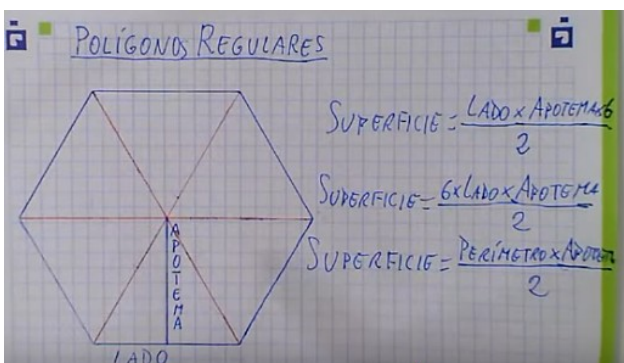 POLÍGONOS REGULARES
SUPERFICIE = LADO x APOTEMA x 6
2
SUPERFICIE = 6 x LADO x APOTEMA
2
SUPERFICIE = PERÍMETRO x
2
APOTEMA
LADO